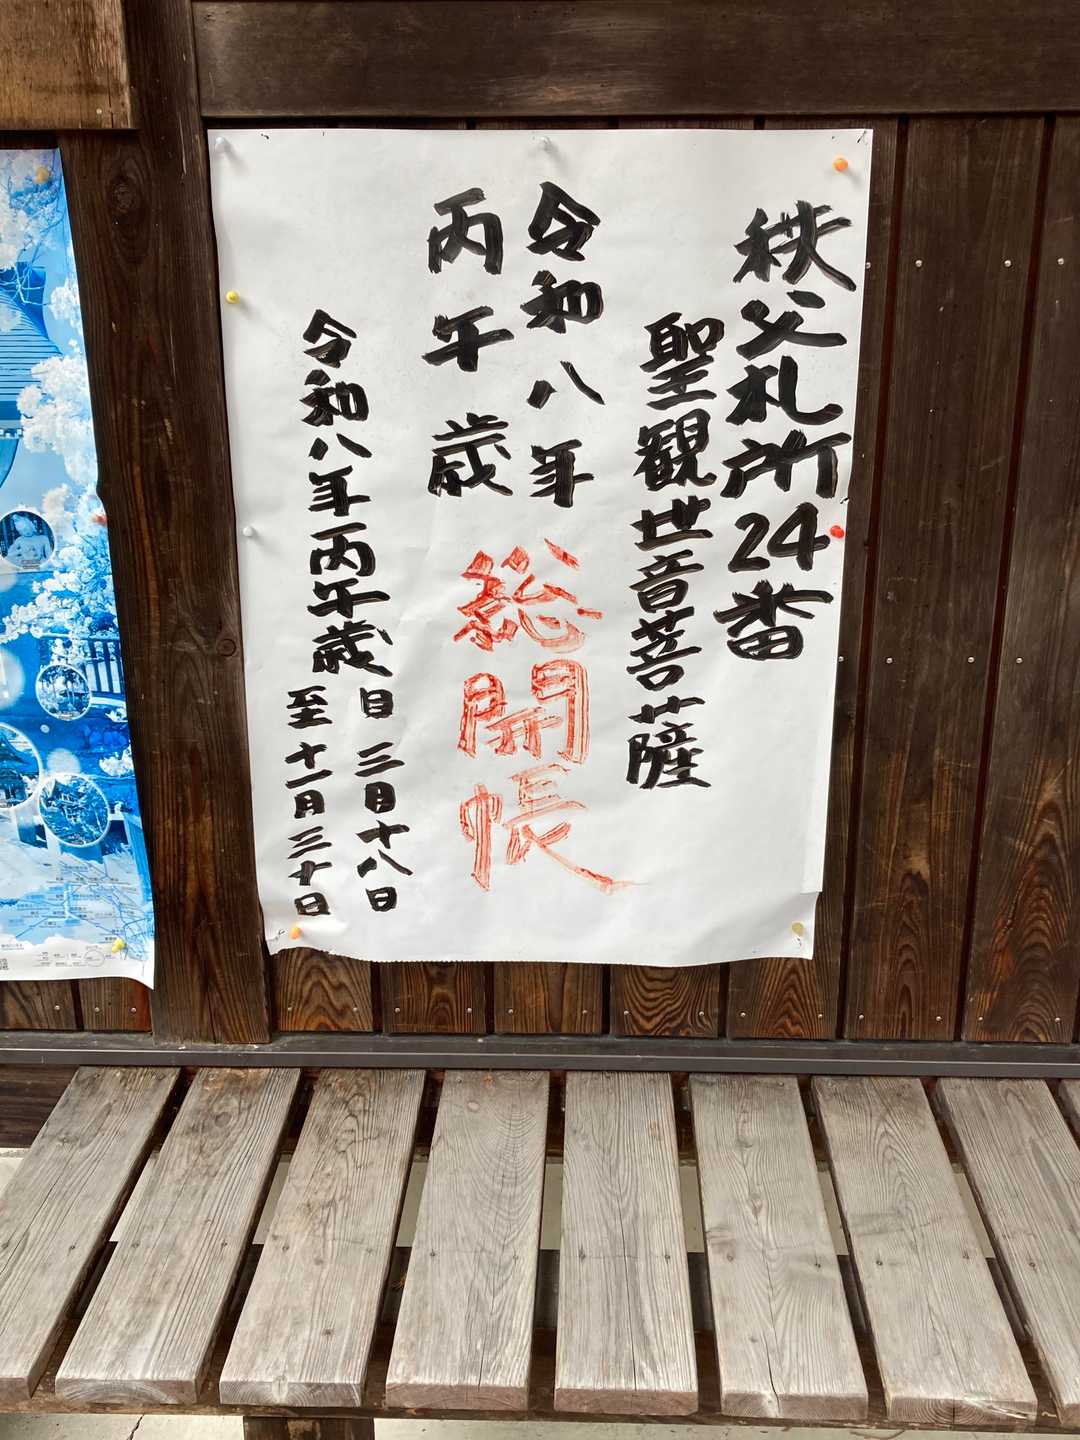 秩父札所24番
聖観世音菩薩
令和八年
丙午歳
総開帳
令和八年丙午歳
自 三月十八日
至 十一月三十日